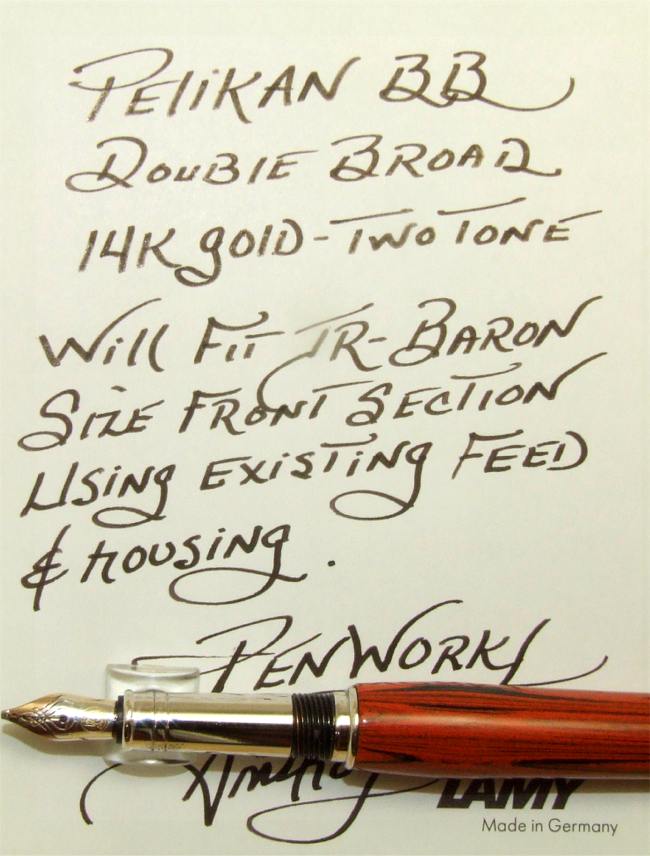 PELIKAN BB
DOUBLE BROAD
14K gOLD - TWO TONE
Will FIT JR-BARON
SIZE FRONT SECTION
USING EXISTING FEED
& housing .
PENWORKS
LAMY
Made in Germany